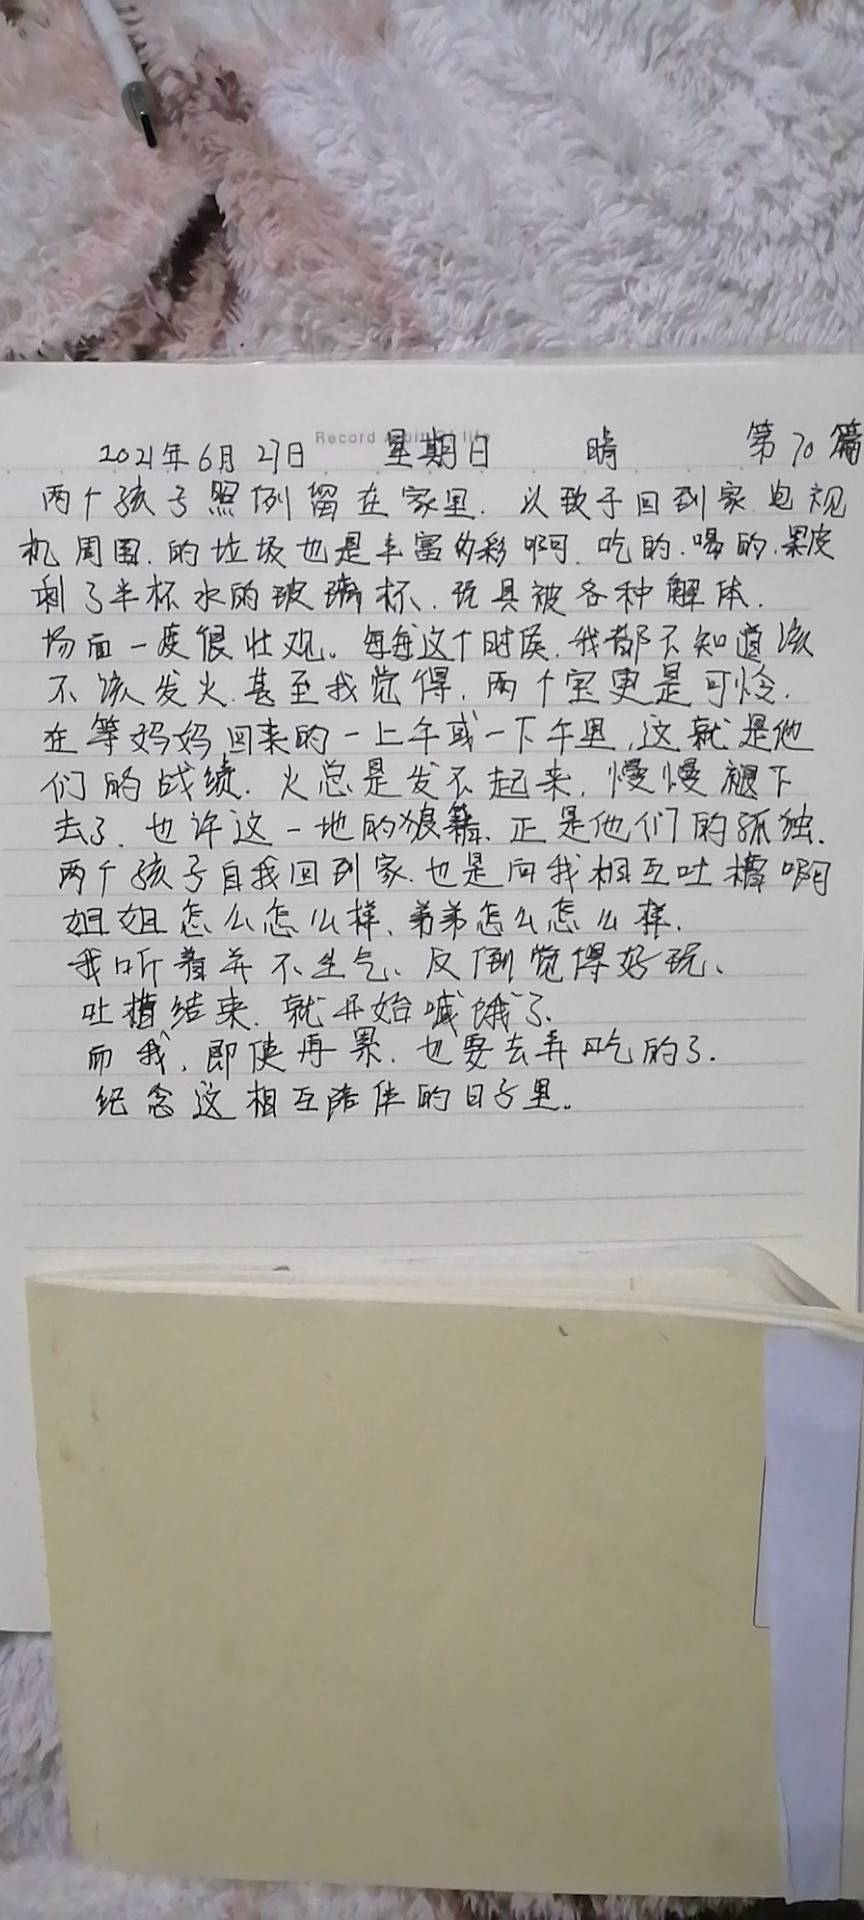 Record
2021年6月27日 星期日 晴 第70篇
两个孩子照例留在家里.以致于回到家.电视
机周围.的垃圾也是丰富多彩啊.吃的.喝的.果皮
剩了半杯水的玻璃杯、玩具被各种解体.
场面一度很壮观。每每这个时候.我都不知道该
不该发火.甚至我觉得.两个宝更是可怜.
在等妈妈回来的一上午或一下午里,这就是他
们的战绩.火总是发不起来.慢慢褪下
去了.也许这一地的狼籍、正是他们的孤独.
两个孩子自我回到家.也是向我相互吐槽啊
姐姐怎么怎么样、弟弟怎么怎么样.
我听着并不生气、反倒觉得好玩、
吐槽结束.就开始喊饿了.
而我,即使再累.也要去弄吃的了.
纪念这相互陪伴的日子里。